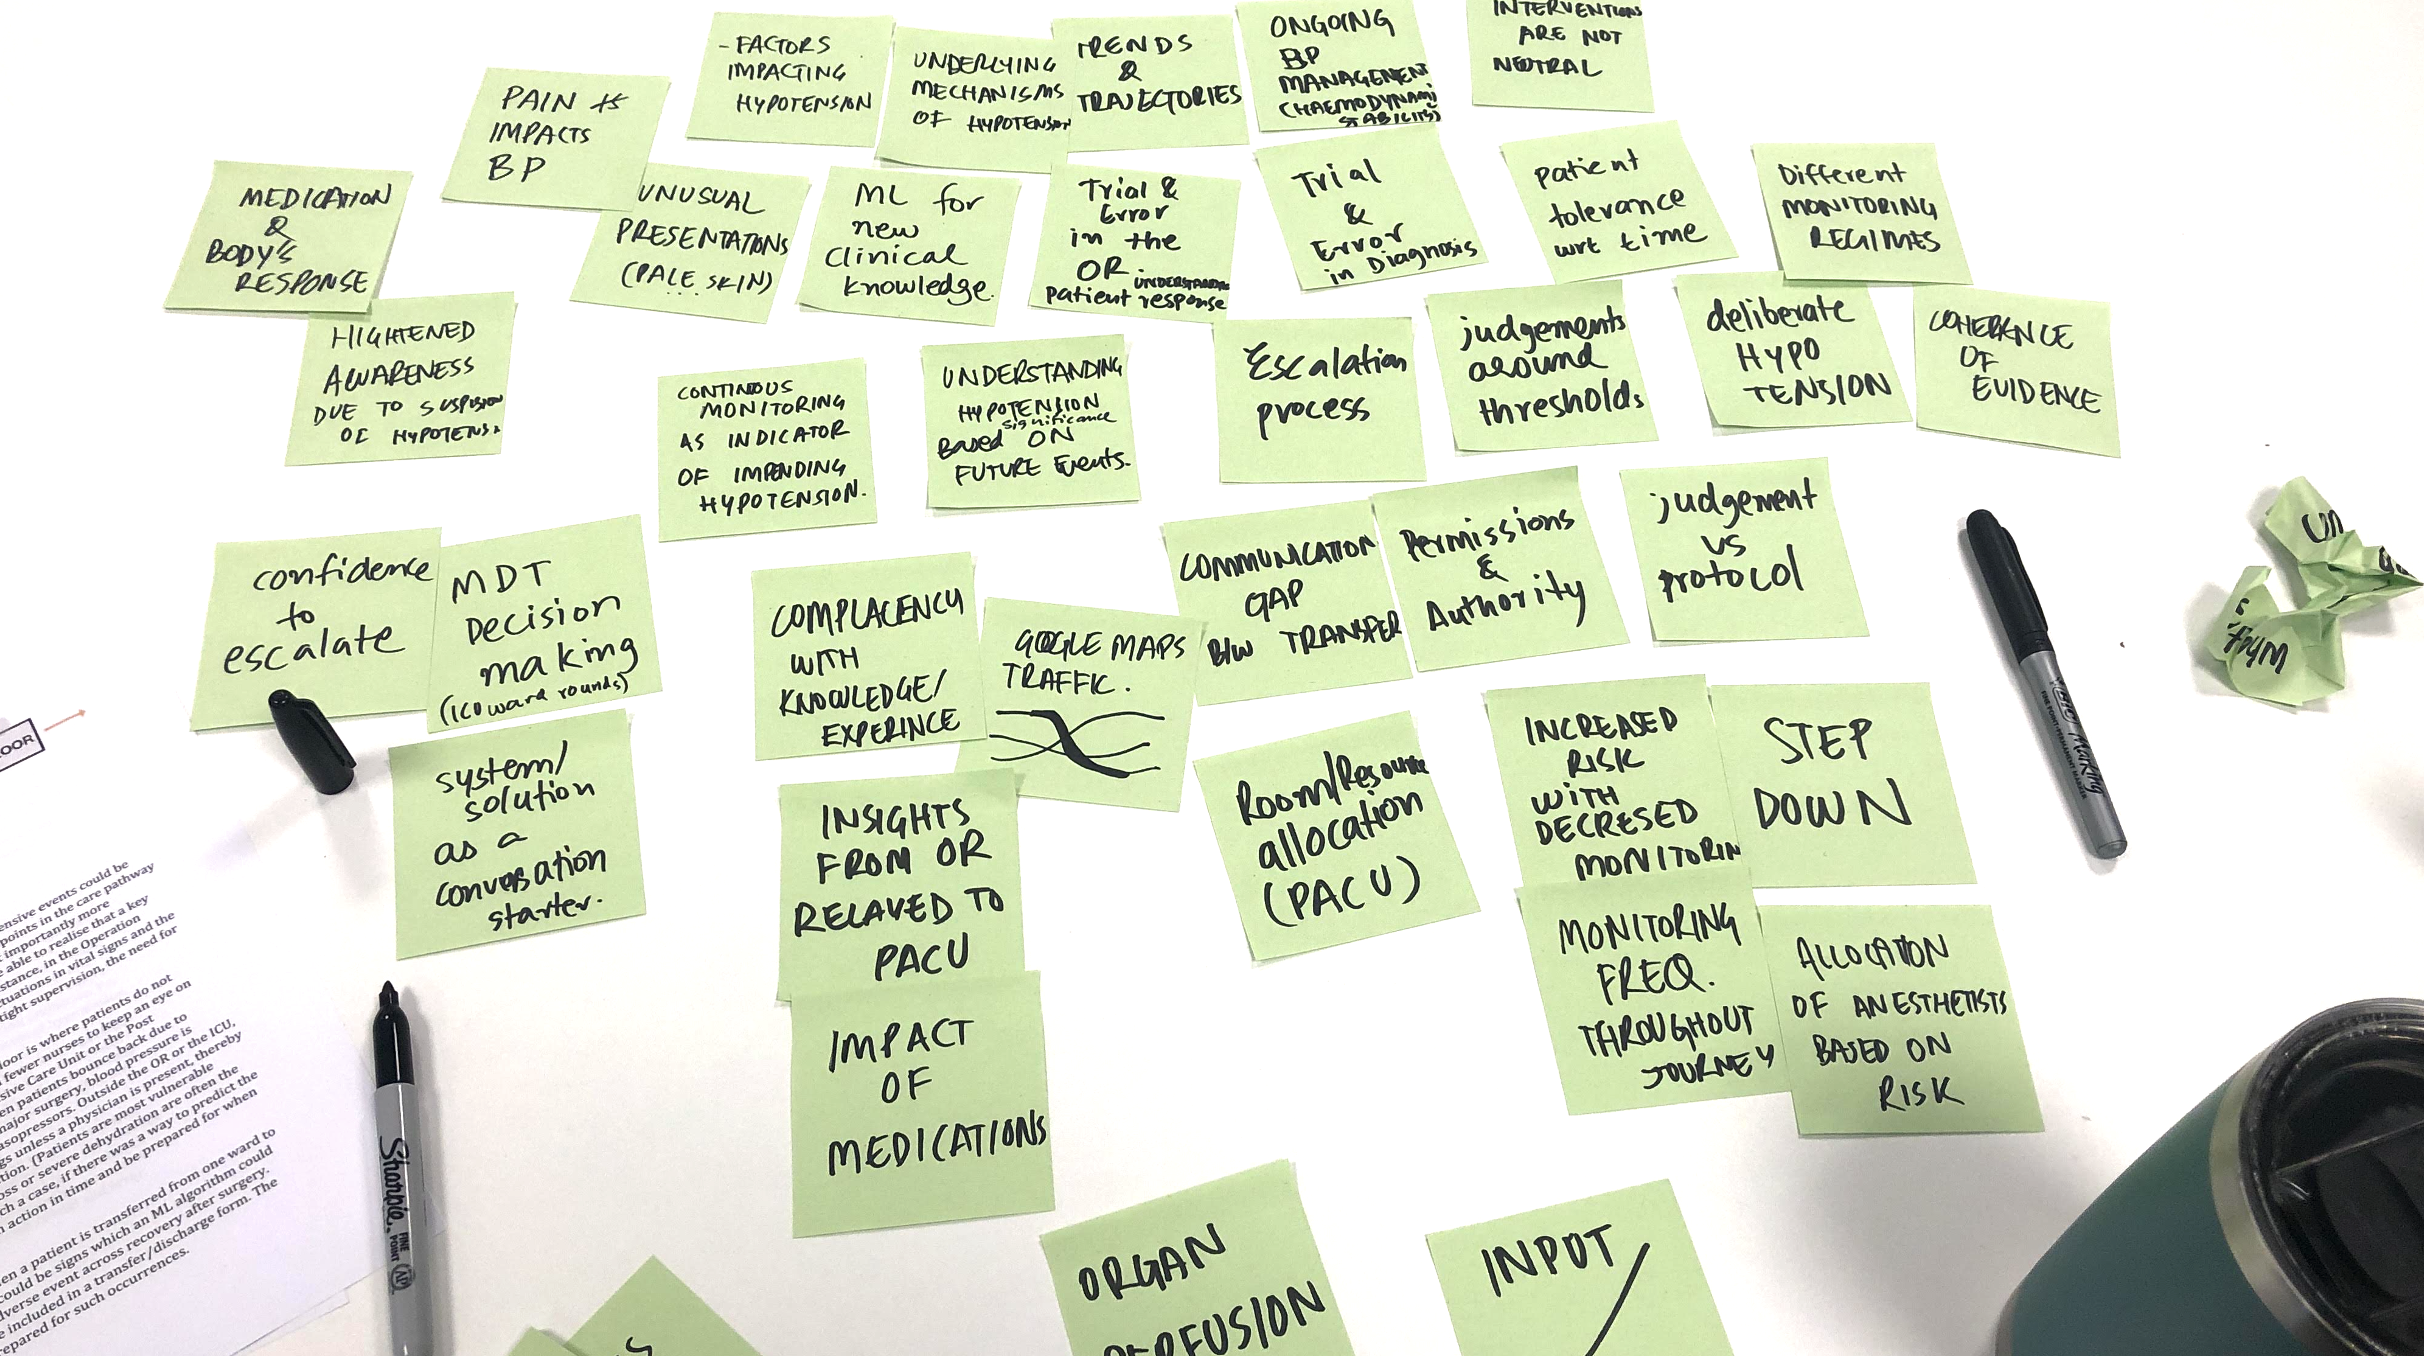 - FACTORS
IMPACTING
HYPOTENSION
UNDERLYING
MECHANISMS
OF HYPOTENSION
TRENDS
&
TRAJECTORIES
ONGOING
BP
MANAGEMENT
(HAEMODYNAMI
STABILITY)
INTERVENTIONS
ARE NOT
NEUTRAL
PAIN
IMPACTS
BP
MEDICATION
&
BODY'S
RESPONSE
UNUSUAL
PRESENTATIONS
(PALE SKIN)
...
ML for
new
clinical
knowledge.
Trial &
Error
in the
OR UNDERSTANDING
patient response
Trial
&
Error
in Diagnosis
patient
tolerance
wrt time
Different
MONITORING
REGIMES
HIGHTENED
AWARENESS
DUE TO SUSPISION
OF HYPOTENSI
CONTINOUS
MONITORING
AS INDICATOR
OF IMPENDING
HYPOTENSION.
UNDERSTANDING
HYPOTENSION
significance
Based ON
FUTURE Events.
Escalation
process
judgements
around
thresholds
deliberate
HYPO
TENSION
COHERENCE
OF
EVIDENCE
confidence
to
escalate
MDT
Decision
making
(ICU ward rounds)
COMPLACENCY
WITH
KNOWLEDGE/
EXPERINCE
GOOGLE MAPS
TRAFFIC.
COMMUNICATION
GAP
B/W TRANSFER
Permissions
&
Authority
judgement
vs
protocol
system/
solution
as a
conversation
starter.
INSIGHTS
FROM OR
RELAVED TO
PACU
Room/Resource
allocation
(PACU)
INCREASED
RISK
WITH
DECRESED
MONITORIN
STEP
DOWN
IMPACT
OF
MEDICATIONS
MONITORING
FREQ.
THROUGHOUT
JOURNEY
ALLOCATION
OF ANESTHETISTS
BASED ON
RISK
ORGAN
PERFUSION
INPUT
OOR
ensive events could be
points in the care pathway
importantly more
able to realise that a key
stance, in the Operation
ctuations in vital signs and the
tight supervision, the need for
oor is where patients do not
fewer nurses to keep an eye on
sive Care Unit or the Post
en patients bounce back due to
major surgery, blood pressure is
asopressors. Outside the OR or the ICU,
gs unless a physician is present, thereby
tion. (Patients are most vulnerable
oss or severe dehydration are often the
ch a case, if there was a way to predict the
action in time and be prepared for when
en a patient is transferred from one ward to
could be signs which an ML algorithm could
dverse event across recovery after surgery.
e included in a transfer/discharge form. The
epared for such occurrences.
Sharpie.
FINE
POINT